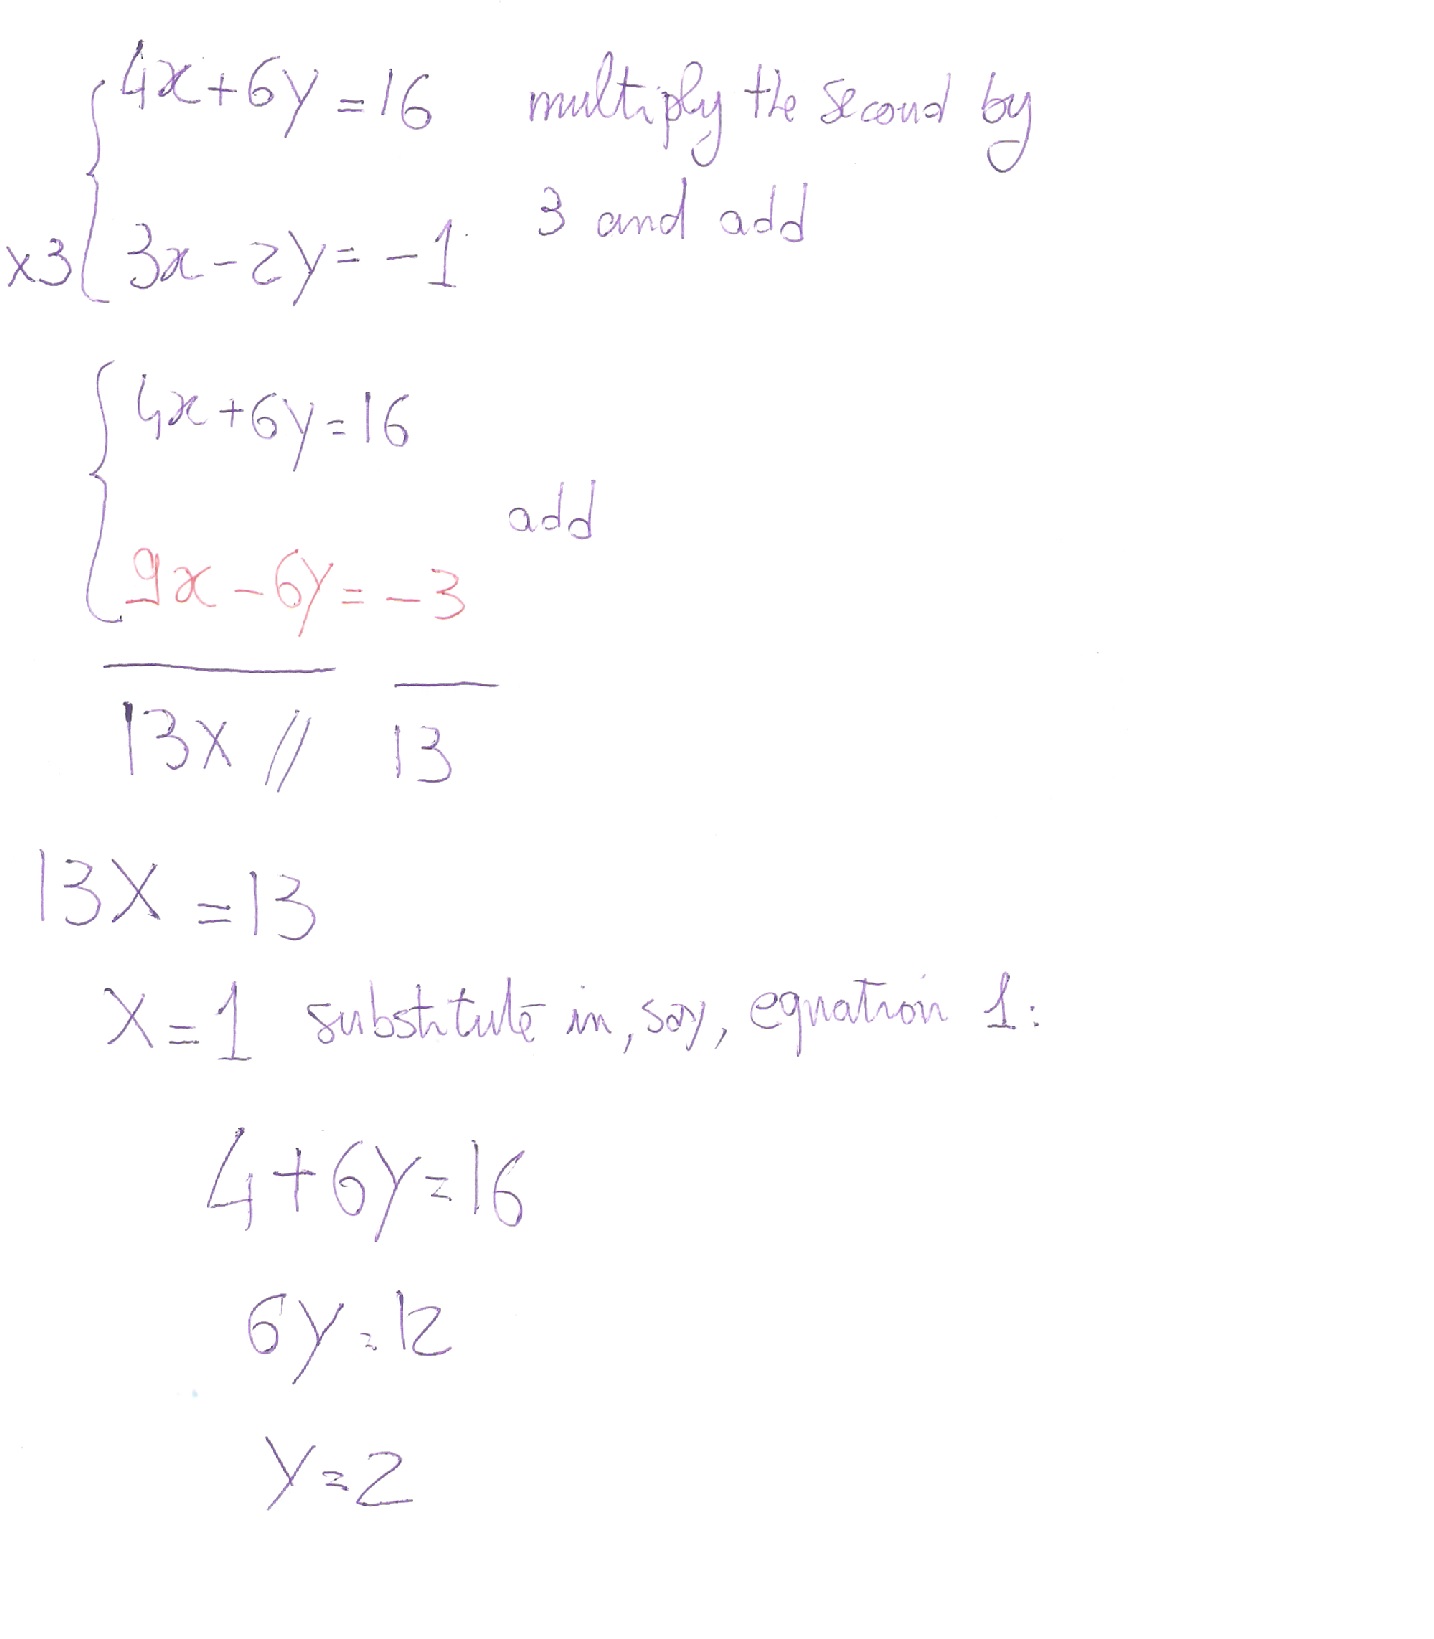 4x+6y=16 multiply the second by
x3 3x-2y=-1 3 and add
4x+6y=16
add
9x-6y=-3
13x // 13
13x=13
x=1 substitute in, say, equation 1:
4+6y=16
6y=12
y=2